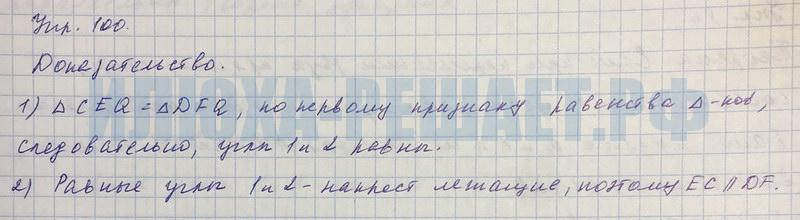 Упр. 100.
Доказательство.
1) △CEQ = △DFQ, по первому признаку равенства △-ков,
следовательно, углы 1 и 2 равны.
2) Равные углы 1 и 2 - накрест лежащие, поэтому EC || DF.
ЛЮХА-РЕШАЕТ.РФ